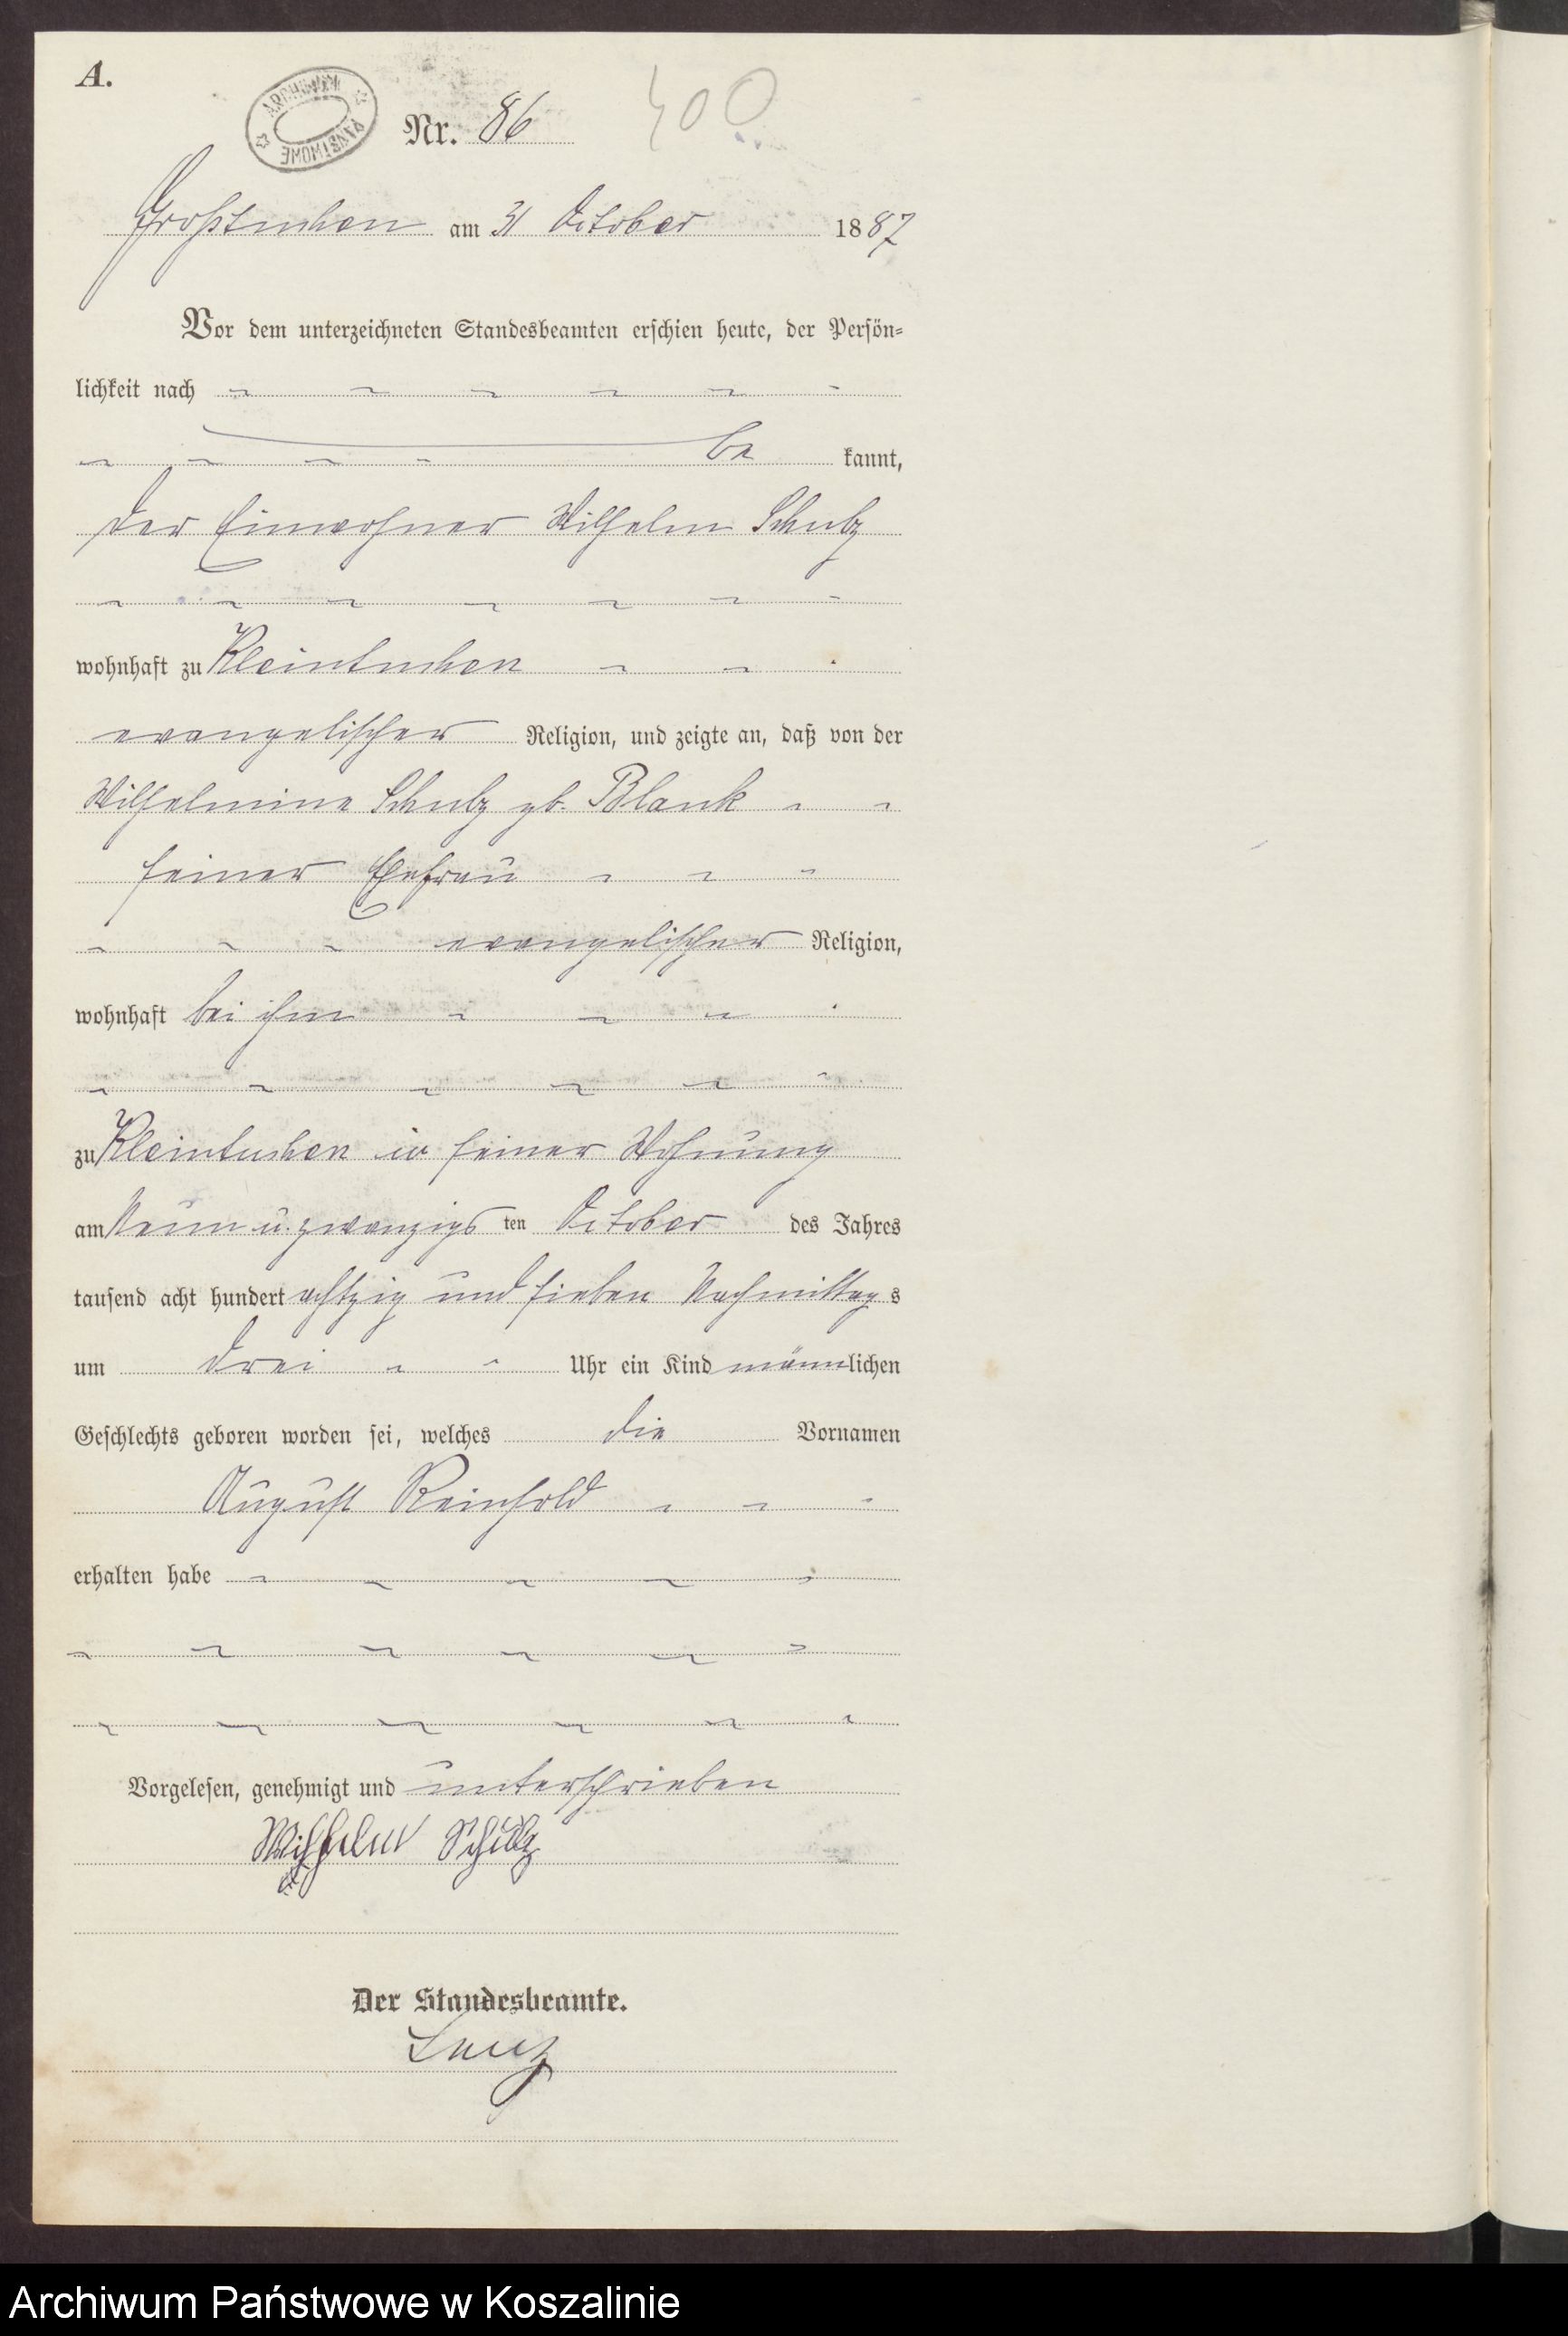 A.
ARCHIWUM PAŃSTWOWE
Nr. 86
400
Großtuchen am 31 October 1887
Vor dem unterzeichneten Standesbeamten erschien heute, der Persön-
lichkeit nach
be kannt,
der Einwohner Wilhelm Schulz
wohnhaft zu Kleintuchen
evangelischer Religion, und zeigte an, daß von der
Wilhelmine Schulz gb. Blank
seiner Ehefrau
evangelischer Religion,
wohnhaft bei ihm
zu Kleintuchen in seiner Wohnung
am Neun u. zwanzigs ten October des Jahres
tausend acht hundert achtzig und sieben Nachmittag s
um drei Uhr ein Kind männlichen
Geschlechts geboren worden sei, welches die Vornamen
August Reinhold
erhalten habe
Vorgelesen, genehmigt und unterschrieben
Wilhelm Schulz
Der Standesbeamte.
Archiwum Państwowe w Koszalinie